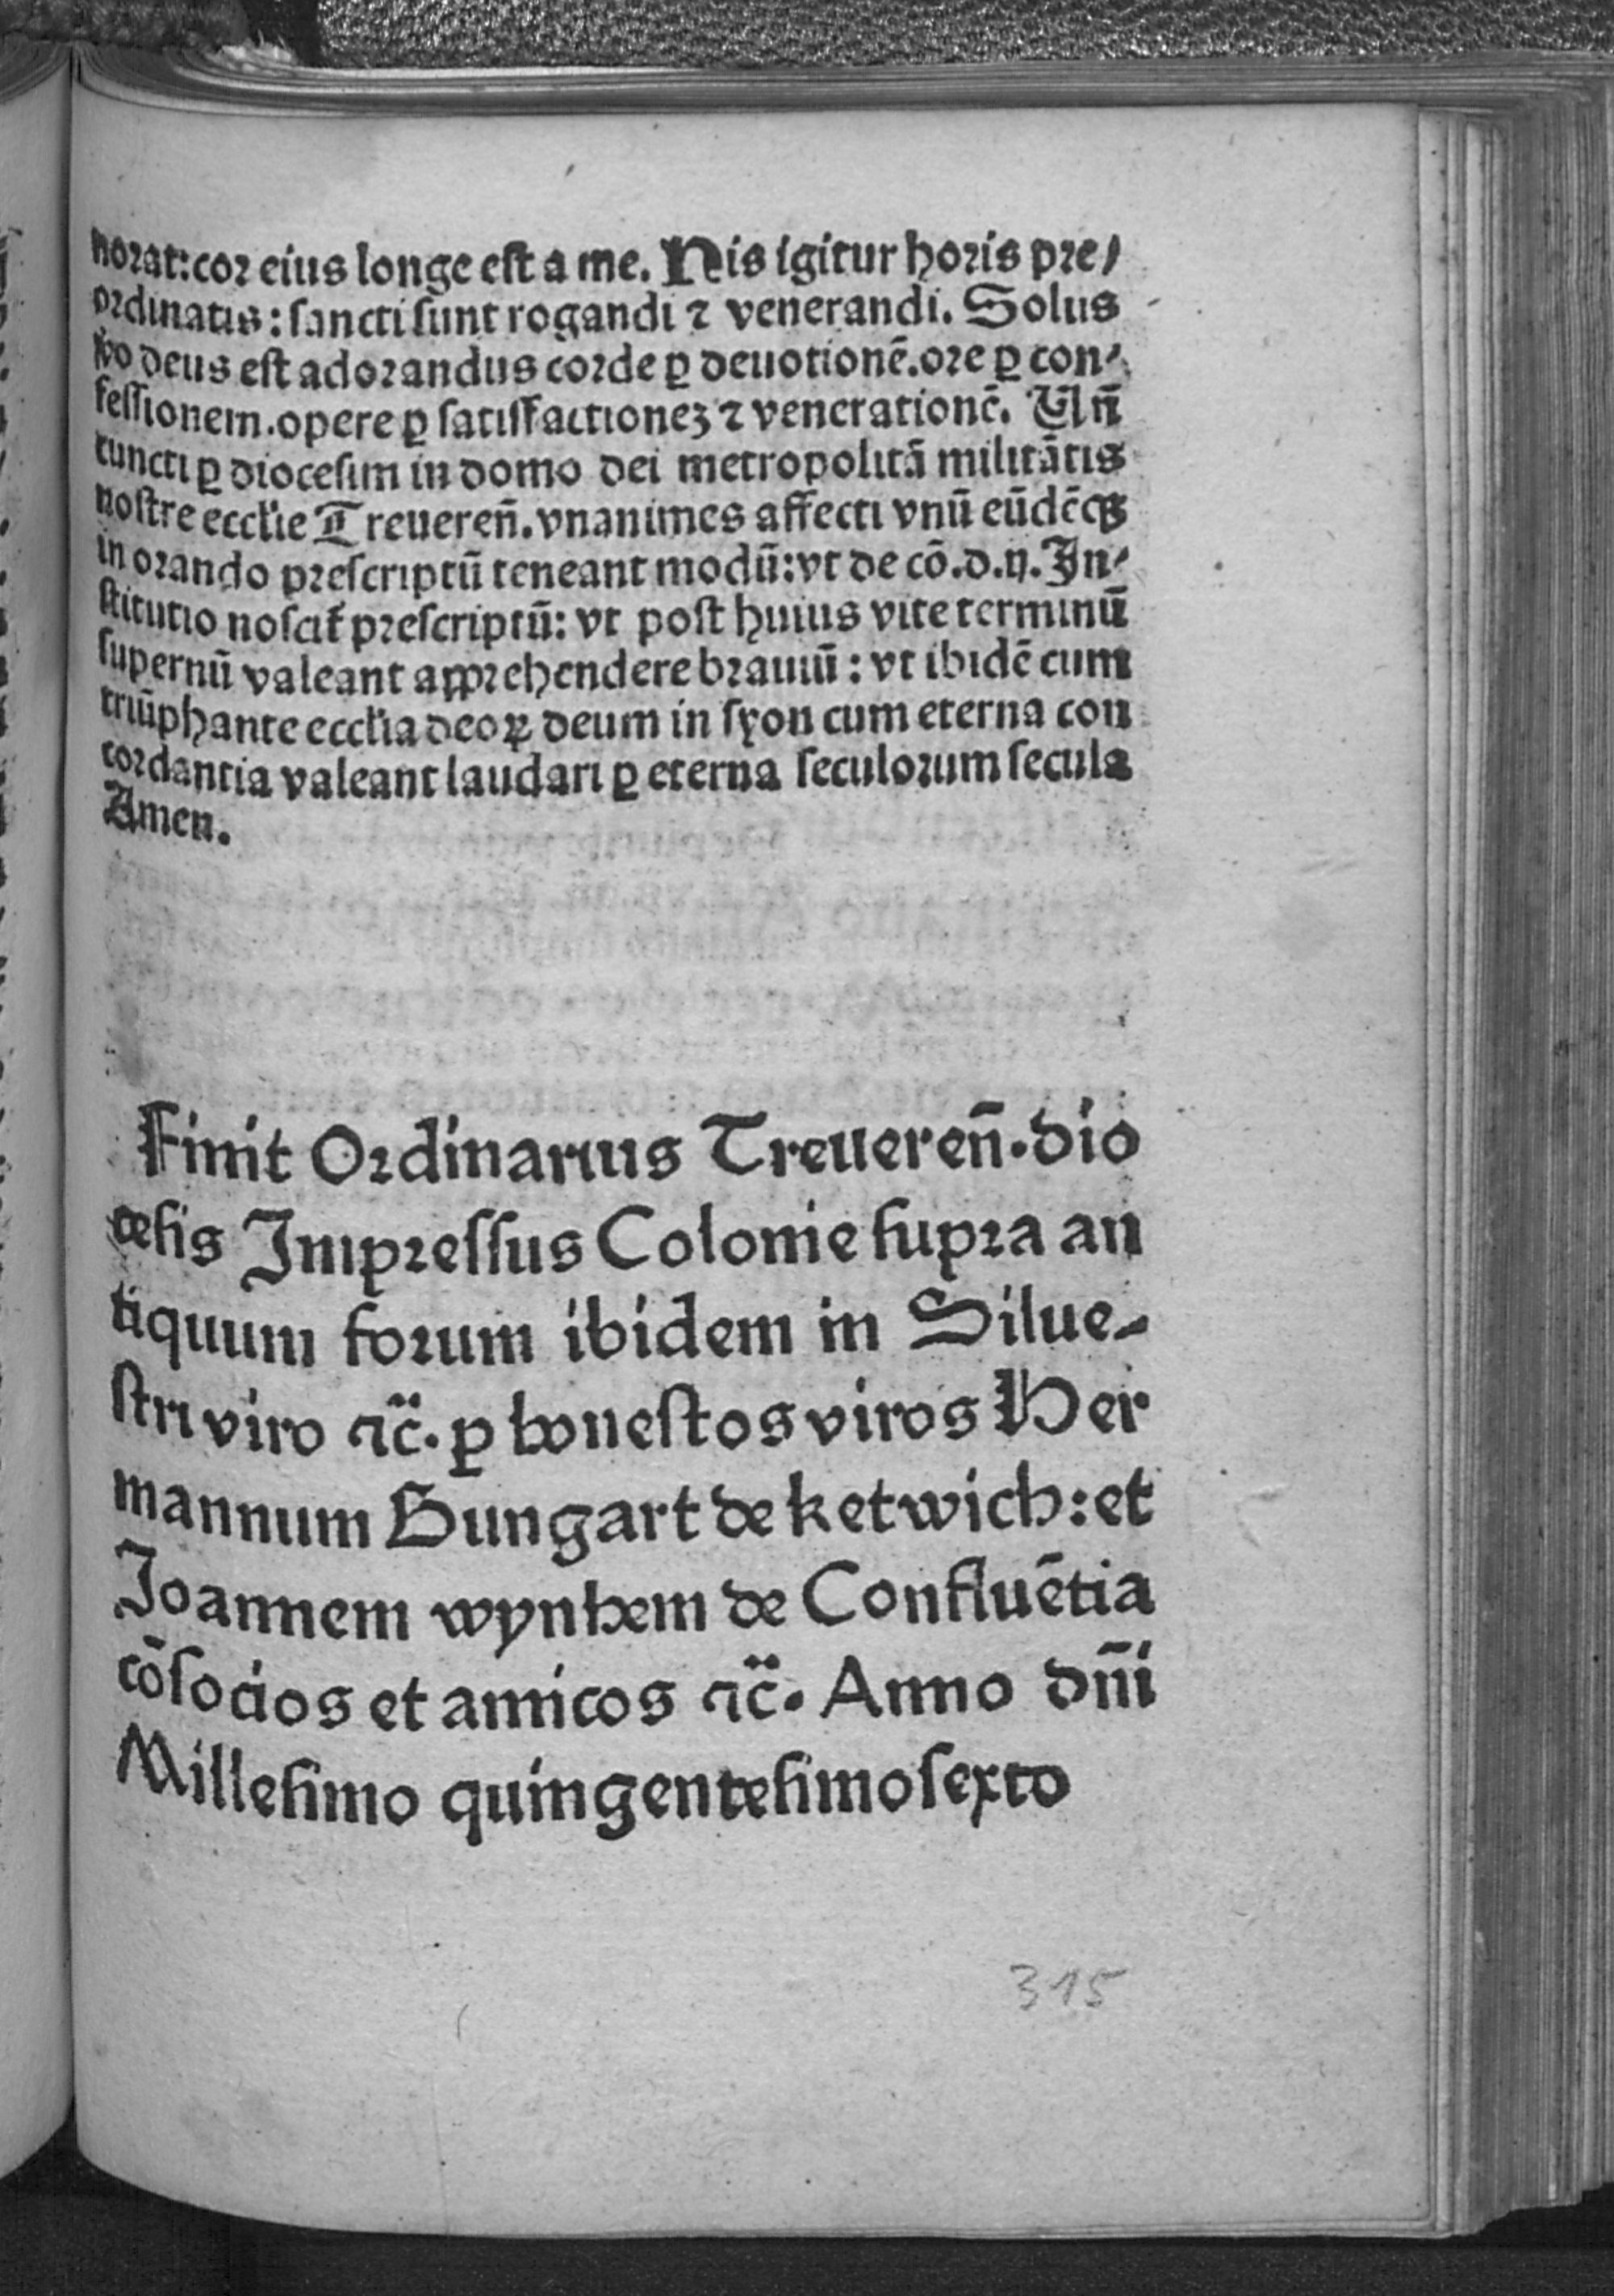 norat: cor eius longe est a me. His igitur horis pre⸗
ordinatis: sancti sunt rogandi ⁊ venerandi. Solus
ꝟo deus est adorandus corde ꝑ deuotionē. ore ꝑ con⸗
fessionem. opere ꝑ satisfactionez ⁊ venerationē. Vn̄
cuncti ꝑ diocesim in domo dei metropolitā militātis
nostre eccl'ie Treueren̄. vnanimes affecti vnū eūdēqꝫ
in orando prescriptū teneant modū: vt de cō. d. ij. In⸗
stitutio noscit᷑ prescriptū: vt post huius vite terminū
supernū valeant apprehendere brauiū: vt ibidē cum
triūphante eccl'ia deoꝝ deum in syon cum eterna con
cordantia valeant laudari ꝑ eterna seculorum secula
Amen.
Finit Ordinarius Treueren̄. dio
cesis Impressus Colonie supra an
tiquum forum ibidem in Silue⸗
stri viro ⁊c̄. ꝑ honestos viros Her
mannum Bungart de ketwich: et
Joannem wynhem de Confluētia
cōsocios et amicos ⁊c̄. Anno dn̄i
Millesimo quingentesimosexto
315